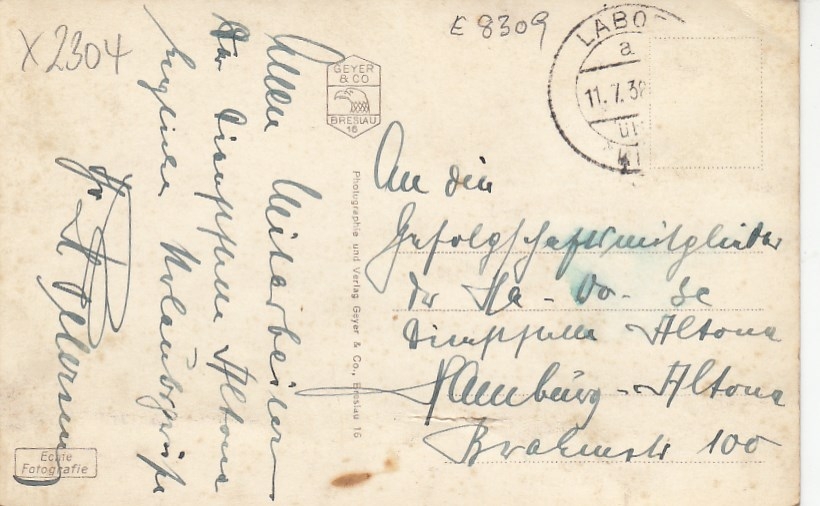 X2304
E 8309
LABO
a
11.7.38
GEYER
& CO
BRESLAU
16
Allen Mitarbeitern
der Dienststelle Altona
herzliche Urlaubsgrüße
Ihr
Photographie und Verlag Geyer & Co., Breslau 16
An die
Gefolgschaftsmitglieder
der Ha-Do-Se
Dienststelle Altona
Hamburg-Altona
100
Echte
Fotografie